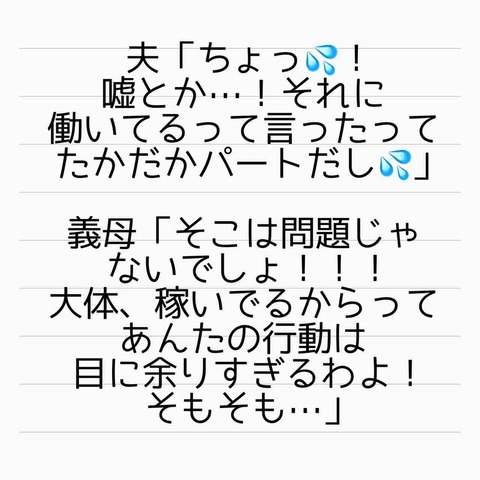 夫「ちょっ💦！
嘘とか…！それに
働いてるって言ったって
たかだかパートだし💦」
義母「そこは問題じゃ
ないでしょ！！！
大体、稼いでるからって
あんたの行動は
目に余りすぎるわよ！
そもそも…」